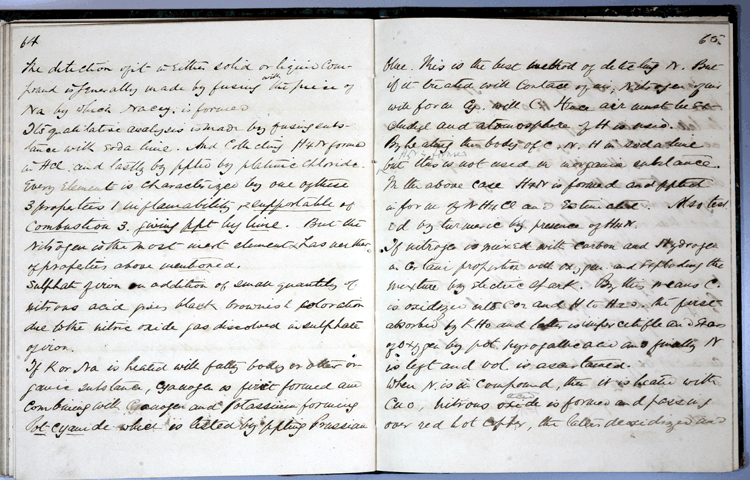 64
The detection of it in Either solid or liquid Com-
pound is generally made by fusing with the piece of
Na by which Nacy. is formed
Its qualitative analysis is made by fusing subs-
tance with soda lime. And Collecting H3N formed
in HCl. and lastly by pptg by platinic chloride.
Every Element is characterized by one of these
3 properties 1 inflamability 2 supportable of
Combustion 3. giving ppt by lime. But the
Nitrogen is the most inert element & has neither
of propeties above mentioned.
Sulphat of iron on addition of small quantity of
nitrous acid gives black brownish coloration
due to the nitric oxide gas discolved in sulphate
of iron.
If K or Na is heated with fatty body or other or-
ganic substance, cyanogen is first formed and
Combining with Cyanogen and Potassium forming
Pot-cyanide which is tested by ppting Prussian
65.
blue. This is the best method of detecting N. But
if it treated with Contact of air, Nitrogen of air
will form Cy. with C. Hence air must be ex-
cluded and atomosphere of H is used.
By heating the body of C. N. H in soda lime
but this is not used in inorganic substance.
In the above case H3N is formed and ppted
in form of NH4Cl and Estimated. Also test
ed by turmeric by presence of H3N.
If nitrogen is mixed with Carbon and Hydrogen
in Certain propotion with oxygen and Exploding the
mixture by electric spark. By this means C.
is oxidized into Co2 and H to H2o. the first
absorbed by KHo and latter is imperceptible and
of oxygen by pot. pyrogallic acid and finally N
is left and vol. is ascertained.
When N is in Compound, then it is heated with
Cuo, Nitrous oxide is formed and passing
over red hot Copper, the latter deoxidized and